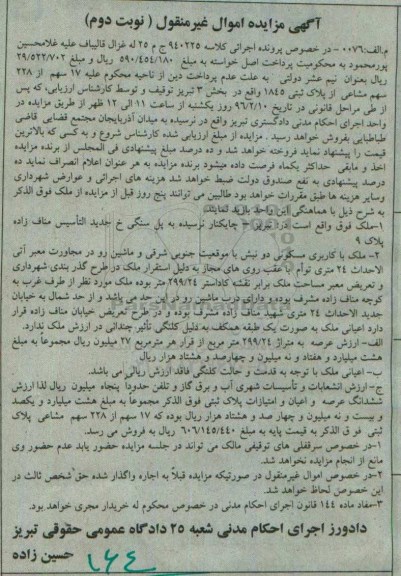 آگهی مزایده اموال غیرمنقول ( نوبت دوم)
م.الف:۰۰۷۶ - در خصوص پرونده اجرائی کلاسه ۹۴۰۲۲۵ ج م ۲۵ له غزال قالیباف علیه غلامحسین
پورمحمود به محکومیت پرداخت اصل خواسته به مبلغ ۵۹۰/۴۵۴/۱۸۰ ریال و مبلغ ۲۹/۵۲۲/۷۰۲
ریال بعنوان نیم عشر دولتی به علت عدم پرداخت دین از ناحیه محکوم علیه ۱۷ سهم از ۲۲۸
سهم مشاعی از پلاک ثبتی ۱۸۴۵ واقع در بخش ۳ تبریز توقیف و توسط کارشناس ارزیابی، که پس
از طی مراحل قانونی در تاریخ ۹۶/۲/۱۰ روز یکشنبه از ساعت ۱۱ الی ۱۲ ظهر از طریق مزایده در
واحد اجرای احکام مدنی دادگستری تبریز واقع در نرسیده به میدان آذربایجان مجتمع قضایی قاضی
طباطبایی بفروش خواهد رسید . مزایده از مبلغ ارزیابی شده کارشناس شروع و به کسی که بالاترین
قیمت را پیشنهاد نماید فروخته خواهد شد و ده درصد مبلغ پیشنهادی فی المجلس از برنده مزایده
اخذ و مابقی حداکثر یکماه فرصت داده میشود برنده مزایده به هر عنوان اعلام انصراف نماید ده
درصد پیشنهادی به نفع صندوق دولت ضبط خواهد شد هزینه های اجرائی و عوارض شهرداری
وسایر هزینه ها طبق مقررات خواهد بود طالبین می توانند پنج روز قبل از مزایده از ملک فوق الذکر
به شرح ذیل با هماهنگی این واحد بازدید نمایند.
۱-ملک فوق واقع است در: تبریز - چایکنار نرسیده به پل سنگی خ جدید التأسیس مناف زاده
پلاک ۹
۲- ملک با کاربری مسکونی دو نبش با موقعیت جنوبی شرقی و ماشین رو در مجاورت معبر آتی
الاحداث ۲۴ متری توأم با عقب روی های مجاز به دلیل استقرار ملک در طرح گذر بندی شهرداری
و تعریض معبر مساحت ملک برابر نقشه کاداستر ۲۹۹/۲۴ متر بوده ملک مورد نظر از طرف غرب به
کوچه مناف زاده مشرف بوده و دارای درب ماشین رو در این حد می باشد و از حد شمال به خیابان
جدید الاحداث ۲۴ متری شهید مناف زاده مشرف بوده و در طرح تعریض خیابان مناف زاده قرار
دارد اعیانی ملک به صورت یک طبقه همکف به دلیل کلنگی تأثیر چندانی در ارزش ملک ندارد.
الف- ارزش عرصه به متراژ ۲۹۹/۲۴ متر مربع از قرار هر مترمربع ۲۷ میلیون ریال مجموعاً به مبلغ
هشت میلیارد و هفتاد و نه میلیون و چهارصد و هشتاد هزار ریال.
ب- اعیانی ملک با توجه به قدمت و حالت کلنگی فاقد ارزش ریالی می باشد.
ج- ارزش انشعابات و تأسیسات شهری آب و برق گاز و تلفن حدوداً پنجاه میلیون ریال لذا ارزش
ششدانگ عرصه و اعیان و امتیازات پلاک ثبتی فوق الذکر مجموعاً به مبلغ هشت میلیارد و یکصد
و بیست و نه میلیون و چهار صد و هشتاد هزار ریال بوده که ۱۷ سهم از ۲۲۸ سهم مشاعی پلاک
ثبتی فو ق الذکر به قیمت پایه به مبلغ ۶۰۶/۱۴۵/۴۴۰ ریال به فروش می رسد.
۱-در خصوص سرقفلی های توقیفی مالک می تواند در جلسه مزایده حضور یابد عدم حضور وی
مانع از انجام مزایده نخواهد شد.
۲-در خصوص اموال غیرمنقول در صورتیکه مزایده قبلاً به اجاره واگذار شده حق شخص ثالث در
این خصوص لحاظ خواهد شد.
۳-مفاد ماده ۱۴۴ قانون اجرای احکام مدنی در خصوص محکوم له خریدار مجری خواهد بود.
دادورز اجرای احکام مدنی شعبه ۲۵ دادگاه عمومی حقوقی تبریز
حسین زاده
۱۶۴